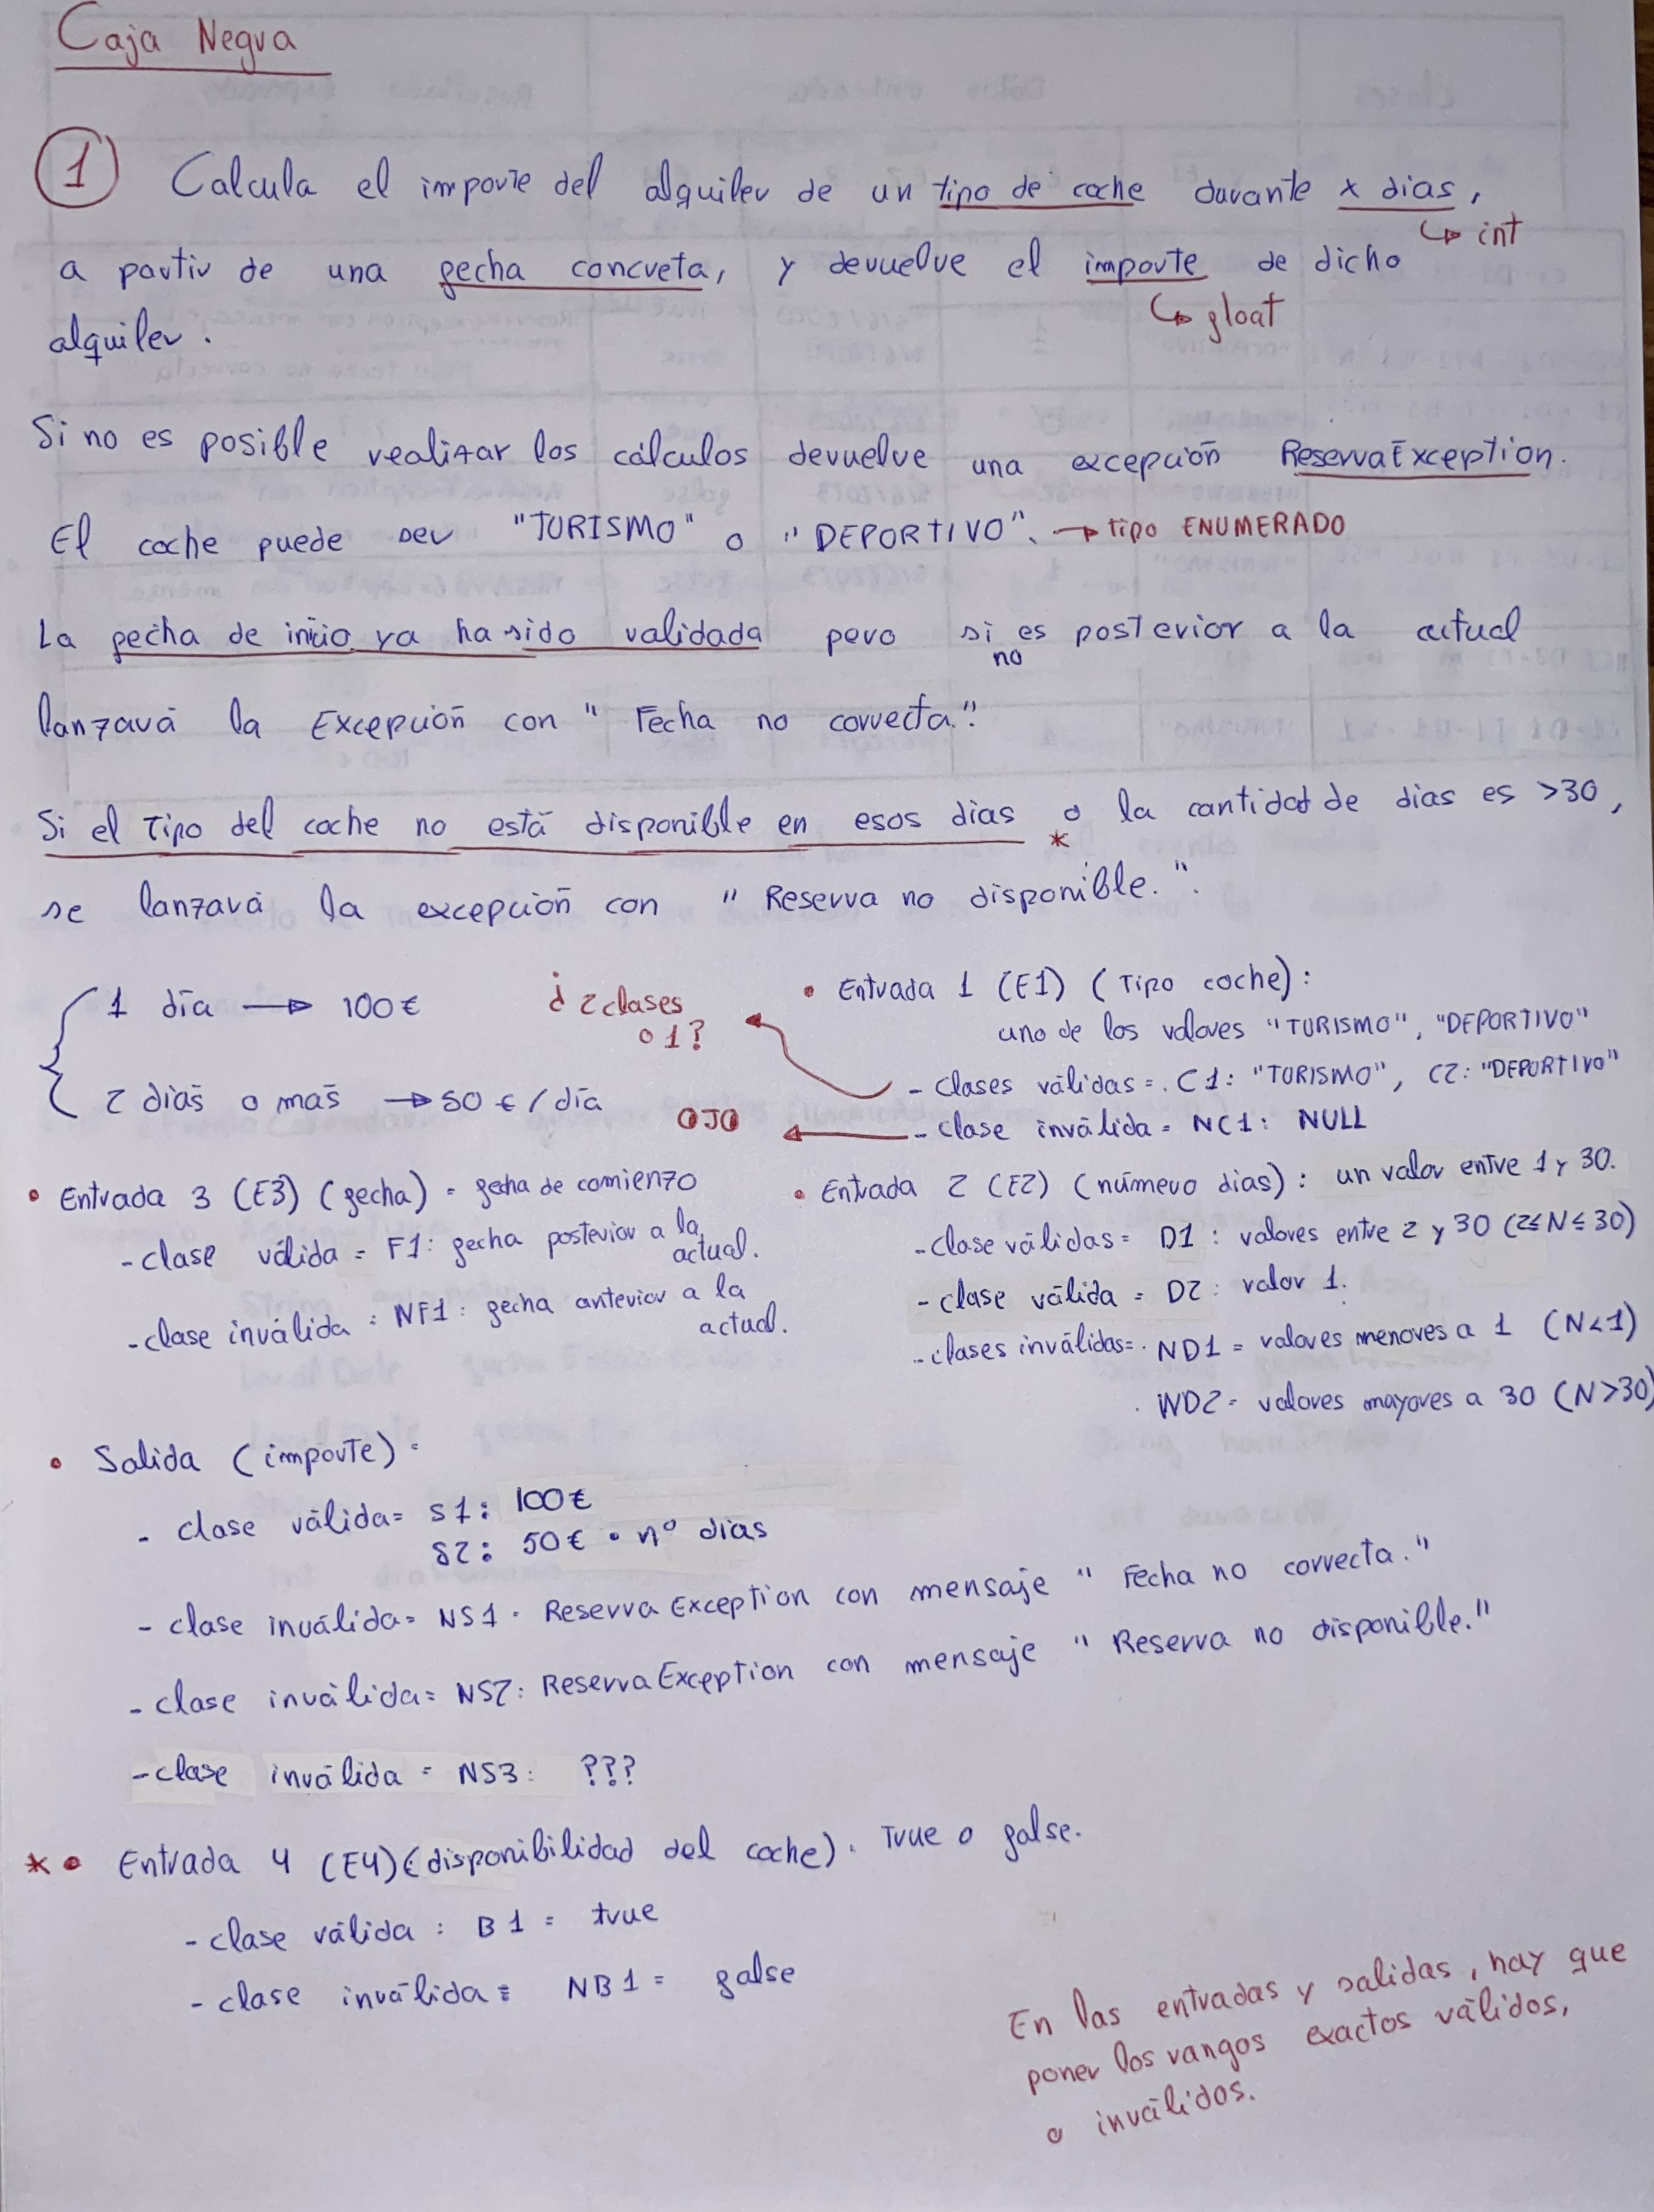 Caja Negra
1 Calcula el importe del alquiler de un tipo de coche durante x dias,
↳ int
a partir de una fecha concreta, y devuelve el importe de dicho
↳ float
alquiler.
Si no es posible realizar los cálculos devuelve una excepción ReservaException.
El coche puede ser "TURISMO" o "DEPORTIVO". → tipo ENUMERADO
La fecha de inicio ya ha sido validada pero si no es posterior a la actual
lanzará la Excepción con "Fecha no correcta."
Si el tipo del coche no está disponible en esos dias o * la cantidad de dias es >30,
se lanzará la excepción con "Reserva no disponible.".
1 día → 100€
2 días o más → 50 €/día
¿ 2 clases
o 1?
OJO
• Entrada 1 (E1) (Tipo coche):
uno de los valores "TURISMO", "DEPORTIVO"
- Clases válidas = . C1: "TURISMO", C2: "DEPORTIVO"
- clase inválida = NC1: NULL
• Entrada 2 (E2) (número dias): un valor entre 1 y 30.
- Clase válidas = D1: valores entre 2 y 30 (2≤N≤30)
- clase válida = D2: valor 1.
- clases inválidas = . ND1 = valores menores a 1 (N<1)
. ND2 = valores mayores a 30 (N>30)
• Entrada 3 (E3) (fecha) = fecha de comienzo
- clase válida = F1: fecha posterior a la
actual.
- clase inválida = NF1: fecha anterior a la
actual.
• Salida (importe) =
- clase válida = S1: 100€
S2: 50€ · nº dias
- clase inválida = NS1 = ReservaException con mensaje "Fecha no correcta."
- clase inválida = NS2: ReservaException con mensaje "Reserva no disponible."
- clase inválida = NS3: ???
* • Entrada 4 (E4) (disponibilidad del coche). True o false.
- clase válida: B1 = true
- clase inválida = NB1 = false
En las entradas y salidas, hay que
poner los rangos exactos válidos,
o inválidos.